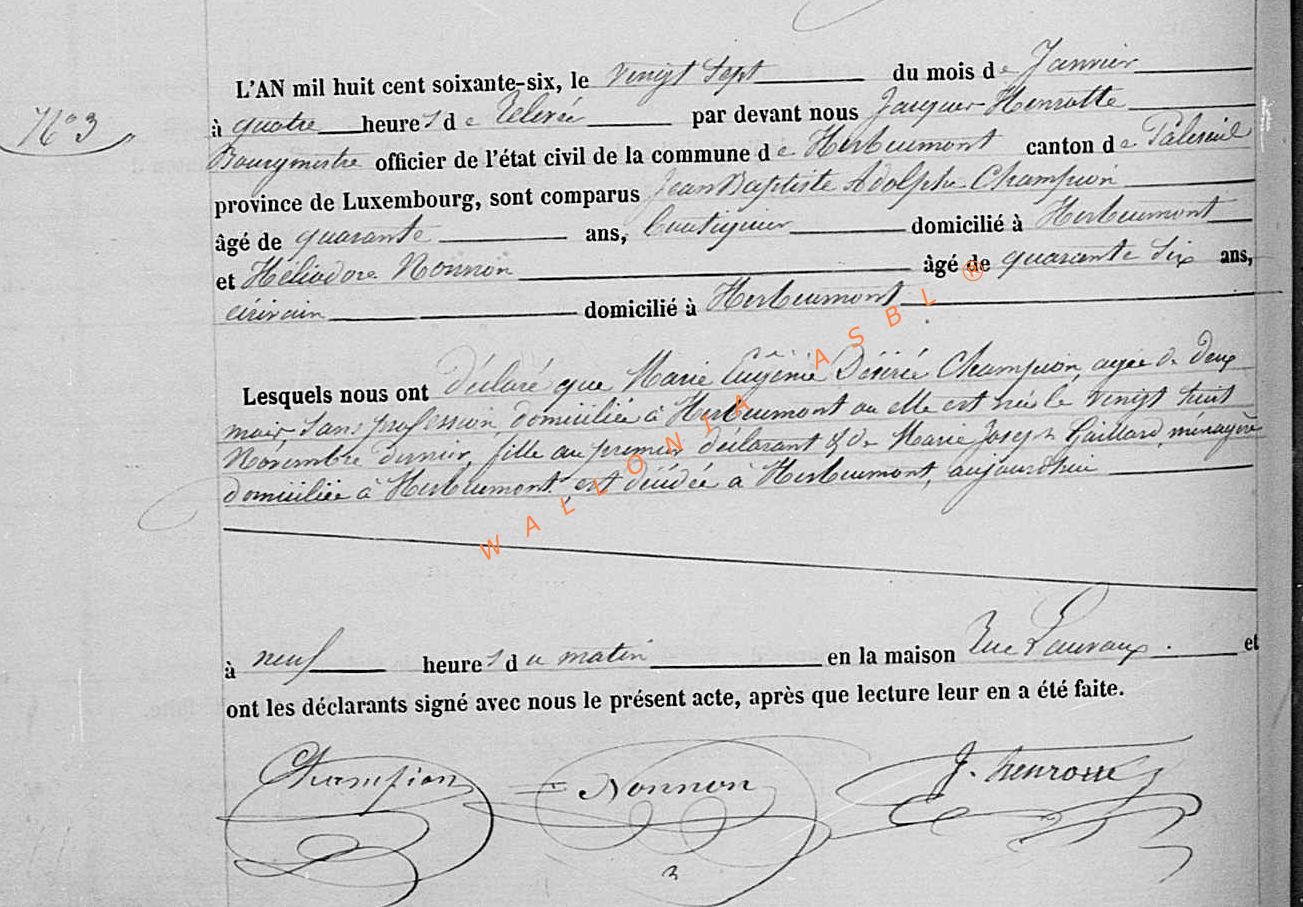 L'AN mil huit cent soixante-six, le vingt sept du mois de Janvier
N° 3
à quatre heures de relevée par devant nous Jacques Henrotte
Bourgmestre officier de l'état civil de la commune de Herbeumont canton de Paliseul
province de Luxembourg, sont comparus Jean Baptiste Adolphe Champion
âgé de quarante ans, Boutiquier domicilié à Herbeumont
et Héliodore Nonnon âgé de quarante six ans,
écrivain domicilié à Herbeumont
Lesquels nous ont déclaré que Marie Eugénie Désirée Champion, agée de deux
mois, sans profession, domiciliée à Herbeumont ou elle est née le vingt huit
Novembre dernier, fille au premier déclarant & de Marie Joseph Gaillard, ménagère
domiciliée à Herbeumont, est décédée à Herbeumont, aujourd'hui
à neuf heures du matin en la maison rue Lauvaux. et
ont les déclarants signé avec nous le présent acte, après que lecture leur en a été faite.
Champion Nonnon J. henrotte
WALLONIA ASBL ®